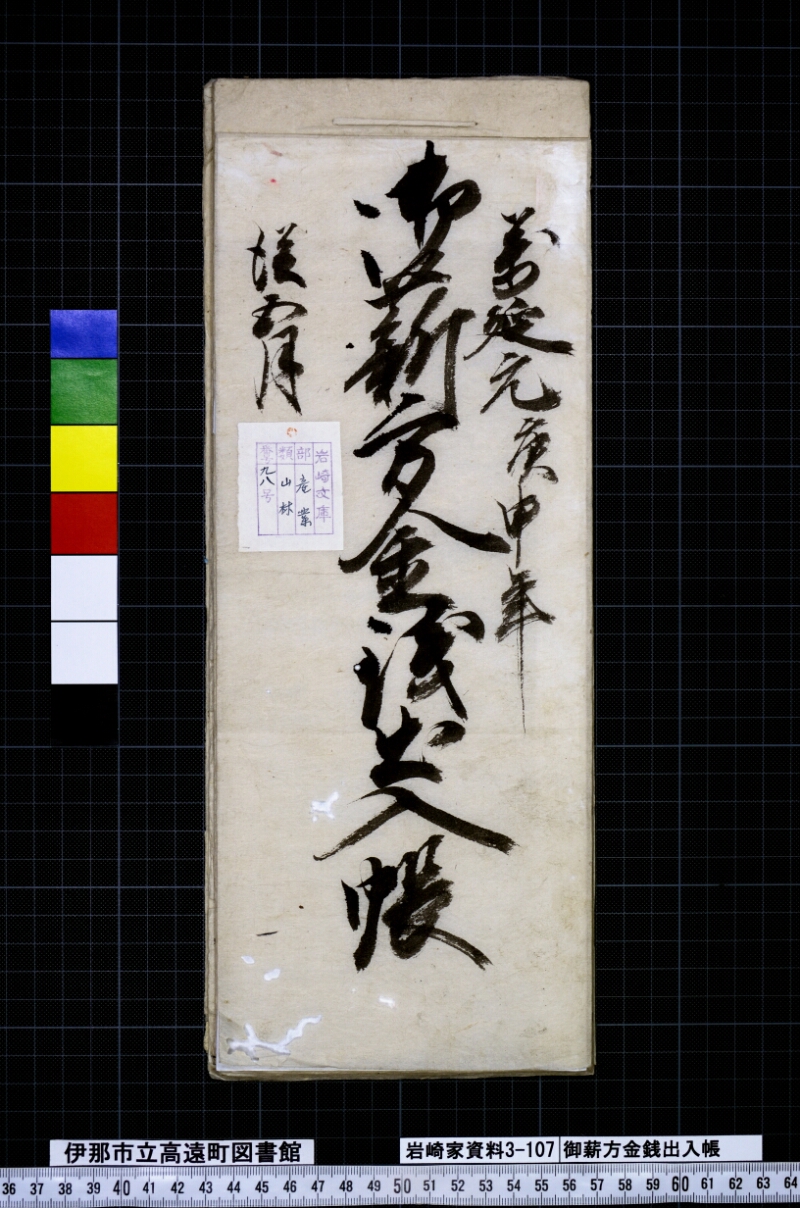 萬延元庚申年
御薪方金銭出入帳
従五月
岩崎文庫
部 産業
類 山林
第九八号
伊那市立高遠町図書館
岩崎家資料3-107
御薪方金銭出入帳
36 37 38 39 40 41 42 43 44 45 46 47 48 49 50 51 52 53 54 55 56 57 58 59 60 61 62 63 64